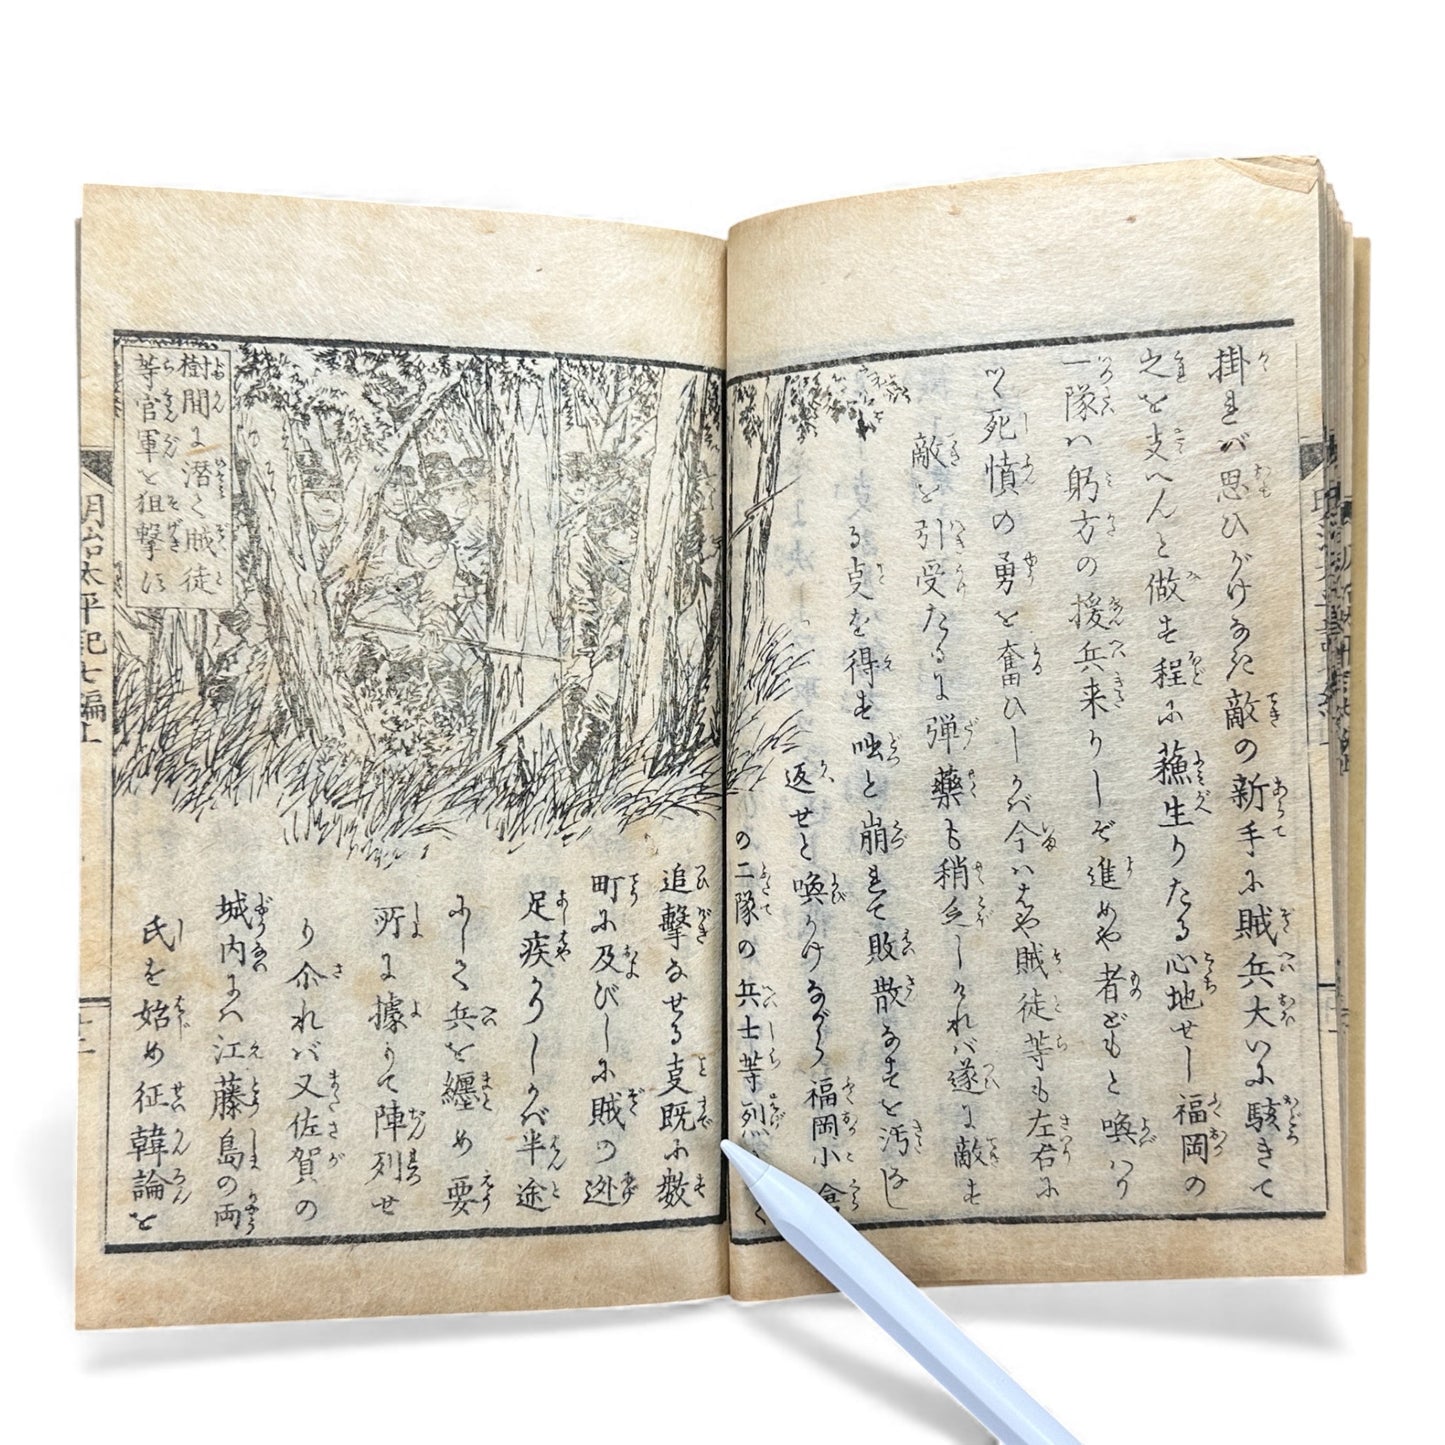 掛れバ思ひがけなき敵の新手に賊兵大いに駭きて
之を支へんと做す程に蘓生りたる心地せし福岡の
一隊ハ躬方の援兵来りしぞ進めや者どもと喚ハり
つゝ死憤の勇を奮ひしかバ今ハはや賊徒等も左右に
敵を引受たるに弾藥も稍乏しけれバ遂に敵す
る㕝を得ず咄と崩れて敗散なすを汚なし
返せと喚びかけながら福岡小倉
の二隊の兵士等烈しく
追撃なせる㕝既に数
町に及びしに賊の迯
足疾かりしかバ半途
にして兵を纏め要
所に據りて陣列せ
り 尒れバ又佐賀の
城内にハ江藤島の両
氏を始め征韓論を
樹間に潜く賊徒
等官軍を狙撃す
明治太平記七編上